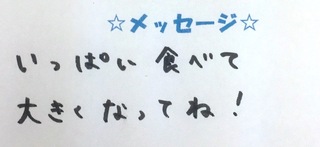 ☆メッセージ☆
いっぱい 食べて
大きく なってね!